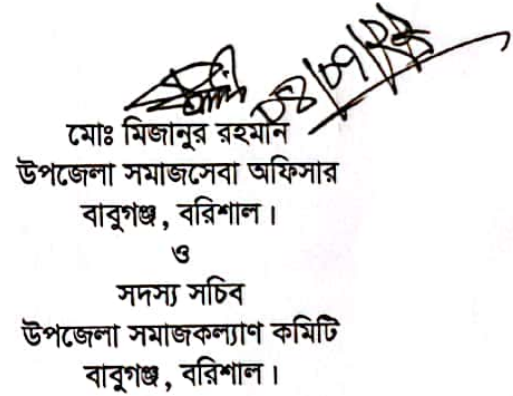 ০৪/০৭/২২
মোঃ মিজানুর রহমান
উপজেলা সমাজসেবা অফিসার
বাবুগঞ্জ, বরিশাল।
ও
সদস্য সচিব
উপজেলা সমাজকল্যাণ কমিটি
বাবুগঞ্জ, বরিশাল।